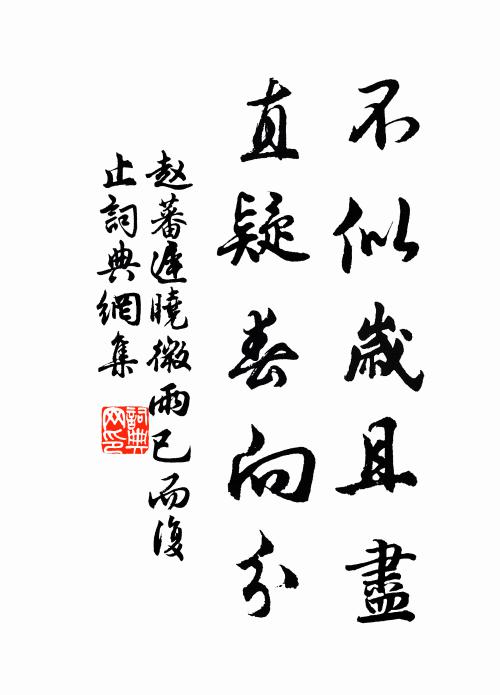 不似歲且盡
直疑春向分
赵蕃遲曉微雨已而復
止詞典網集
詞典網印